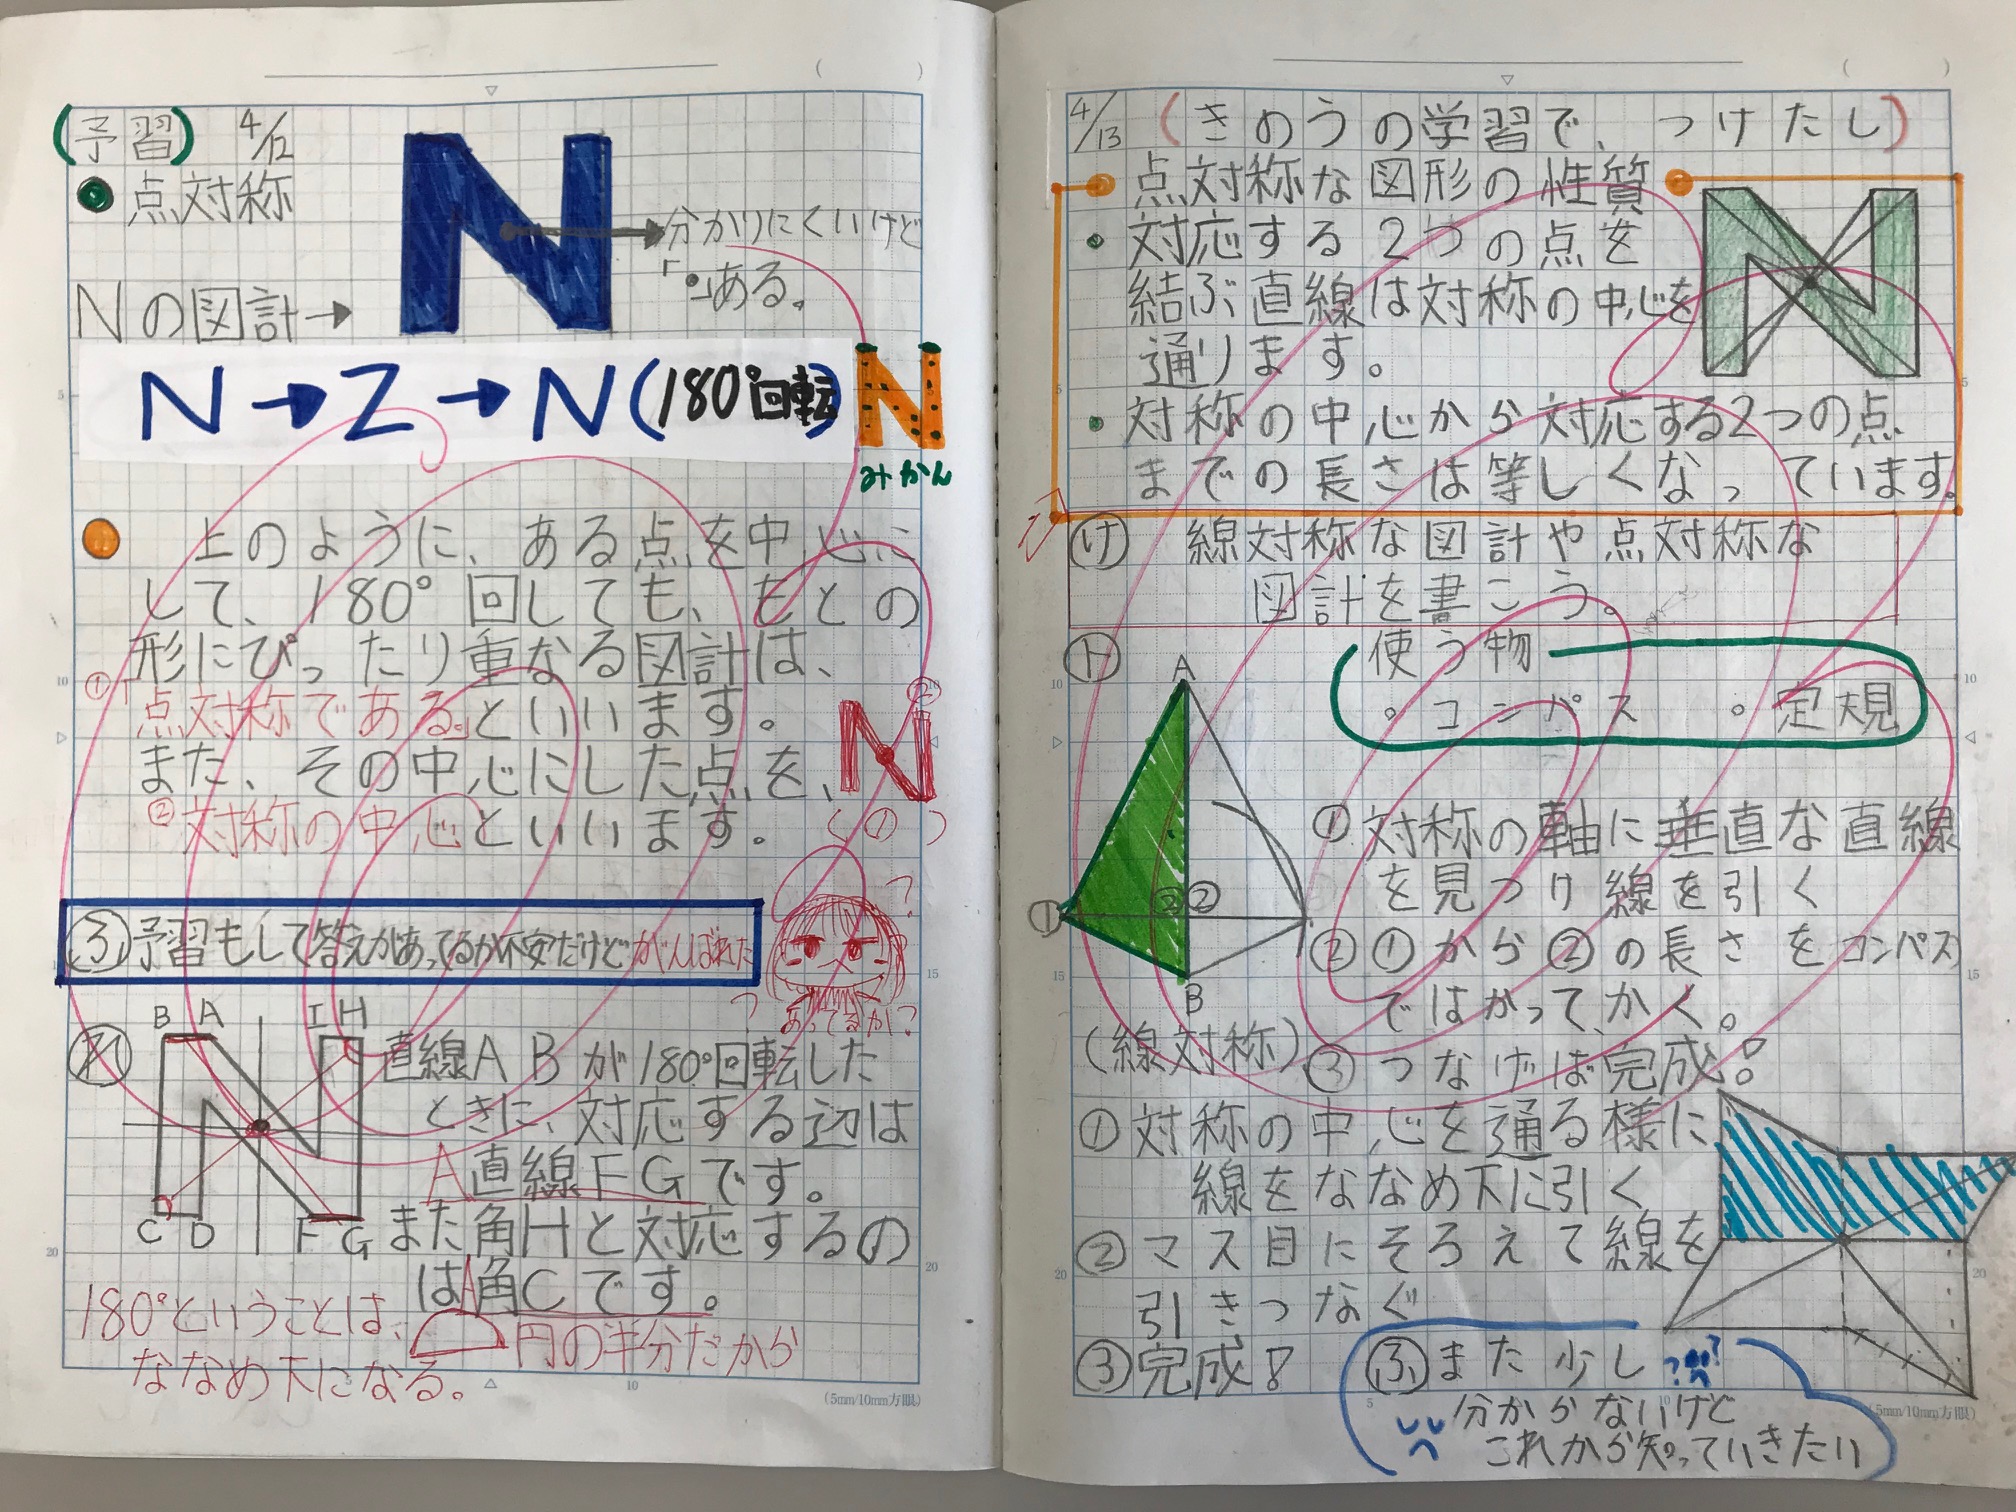 (予習) 4/12
● 点対称
分かりにくいけど
「・」ある。
Nの図計→
N→Z→N(180°回転)
みかん
上のように、ある点を中心に
して、180°回しても、もとの
形にぴったり重なる図計は、
①「点対称である。」といいます。
また、その中心にした点を、
②対称の中心といいます。
②
(①)
ふ 予習もして答えがあってるか不安だけどがんばれた
?
?
あってるか?
B A I H
C D F G
れ 直線ABが180°回転した
ときに、対応する辺は
A 直線FGです。
また角Hと対応するの
は角Cです。
180°ということは、
円の半分だから
ななめ下になる。
5 10
(5mm/10mm方眼)
4/13 (きのうの学習で、つけたし)
点対称な図形の性質
・対応する2つの点を
結ぶ直線は対称の中心を
通ります。
・対称の中心から対応する2つの点
までの長さは等しくなっています。
け 線対称な図計や点対称な
図計を書こう。
ト
使う物
・コンパス ・定規
A
B
① ② ②
(線対称)
①対称の軸に垂直な直線
を見つけ線を引く
②①から②の長さをコンパス
ではかって、かく。
③つなげば完成!
①対称の中心を通る様に
線をななめ下に引く
②マス目にそろえて線を
引きつなぐ
③完成!
ふ また少し
分からないけど
これから知っていきたい
5 10
(5mm/10mm方眼)